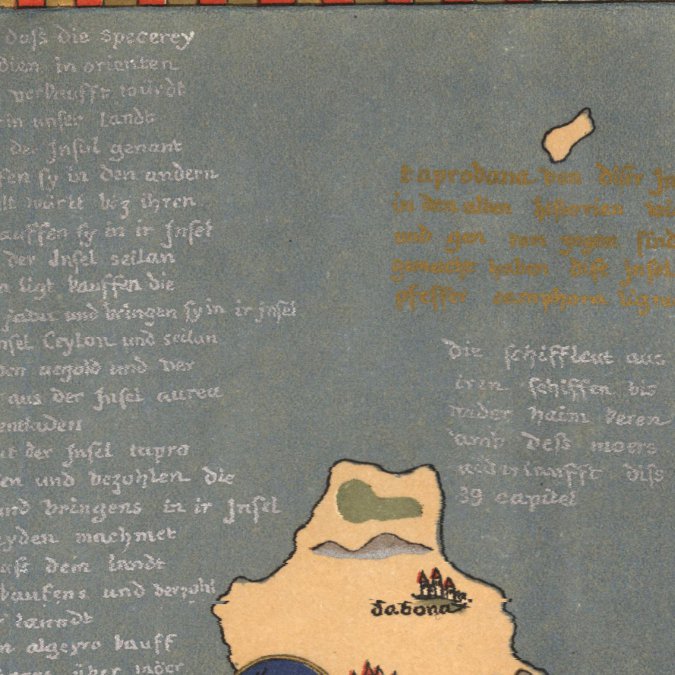 daſs die specerey
dien in orienten
verkaufft wurdt
in unser landt
der Jnsel genant
fen sy in den andern
lt würt bey ihren
auffen sy in ir Jnsel
der Jnsel seilan
n ligt kauffen die
jaua und bringen sy in ir jnsel
nsel Ceylon und seilan
den aegold und der
aus der Jnsel aurea
entladen
der Jnsel tapro
en und bezohlen die
und bringens in ir Jnsel
eyden machmet
auſs dem landt
kaufens und verzohl
r lanndt
n algeyro kauff
über möer
taprobana von diser Jn
in den alten historien
und
gemacht haben diſe Jnsel
pfeffer camphora ligna
die schiffleut aus
iren schiffen bis
wider haim keren
amb deſs moers
diſs
39 capitel
sabona